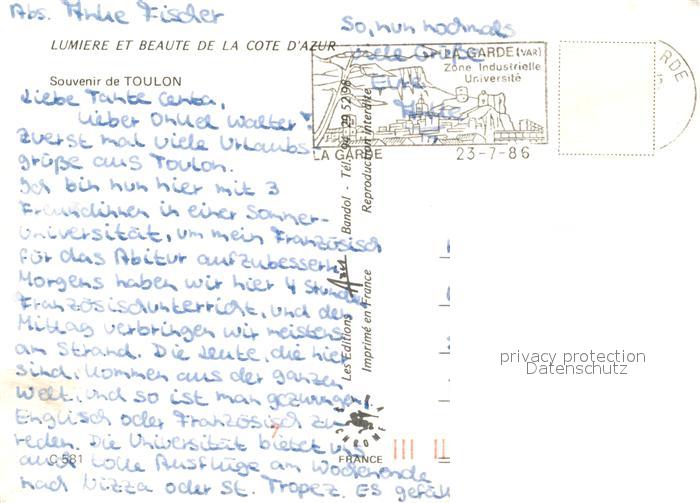 Abs. Anke Fischer
LUMIERE ET BEAUTE DE LA COTE D'AZUR
Souvenir de TOULON
Liebe Tante Centa,
lieber Onkel Walter!
Zuerst mal viele Urlaubs-
grüße aus Toulon.
Ich bin nun hier mit 3
Freundinnen in einer Sommer-
universität, um mein Französisch
für das Abitur aufzubessern.
Morgens haben wir hier 4 Stunden
Französischunterricht, und den
Mittag verbringen wir meistens
am Strand. Die Leute, die hier
sind, kommen aus der ganzen
Welt, und so ist man gezwungen,
Englisch oder Französisch zu
reden. Die Universität bietet uns
auch tolle Ausflüge am Wochenende
nach Nizza oder St. Tropez. Es gefäll
So, nun nochmals
viele Grüße
Eure
Anke
LA GARDE (VAR)
Zone Industrielle
Université
LA GARDE
23-7-86
RDE
Les Editions Aris Bandol - Tél. 94 29 52 96
Imprimé en France Reproduction interdite
C 581
FRANCE
privacy protection
Datenschutz